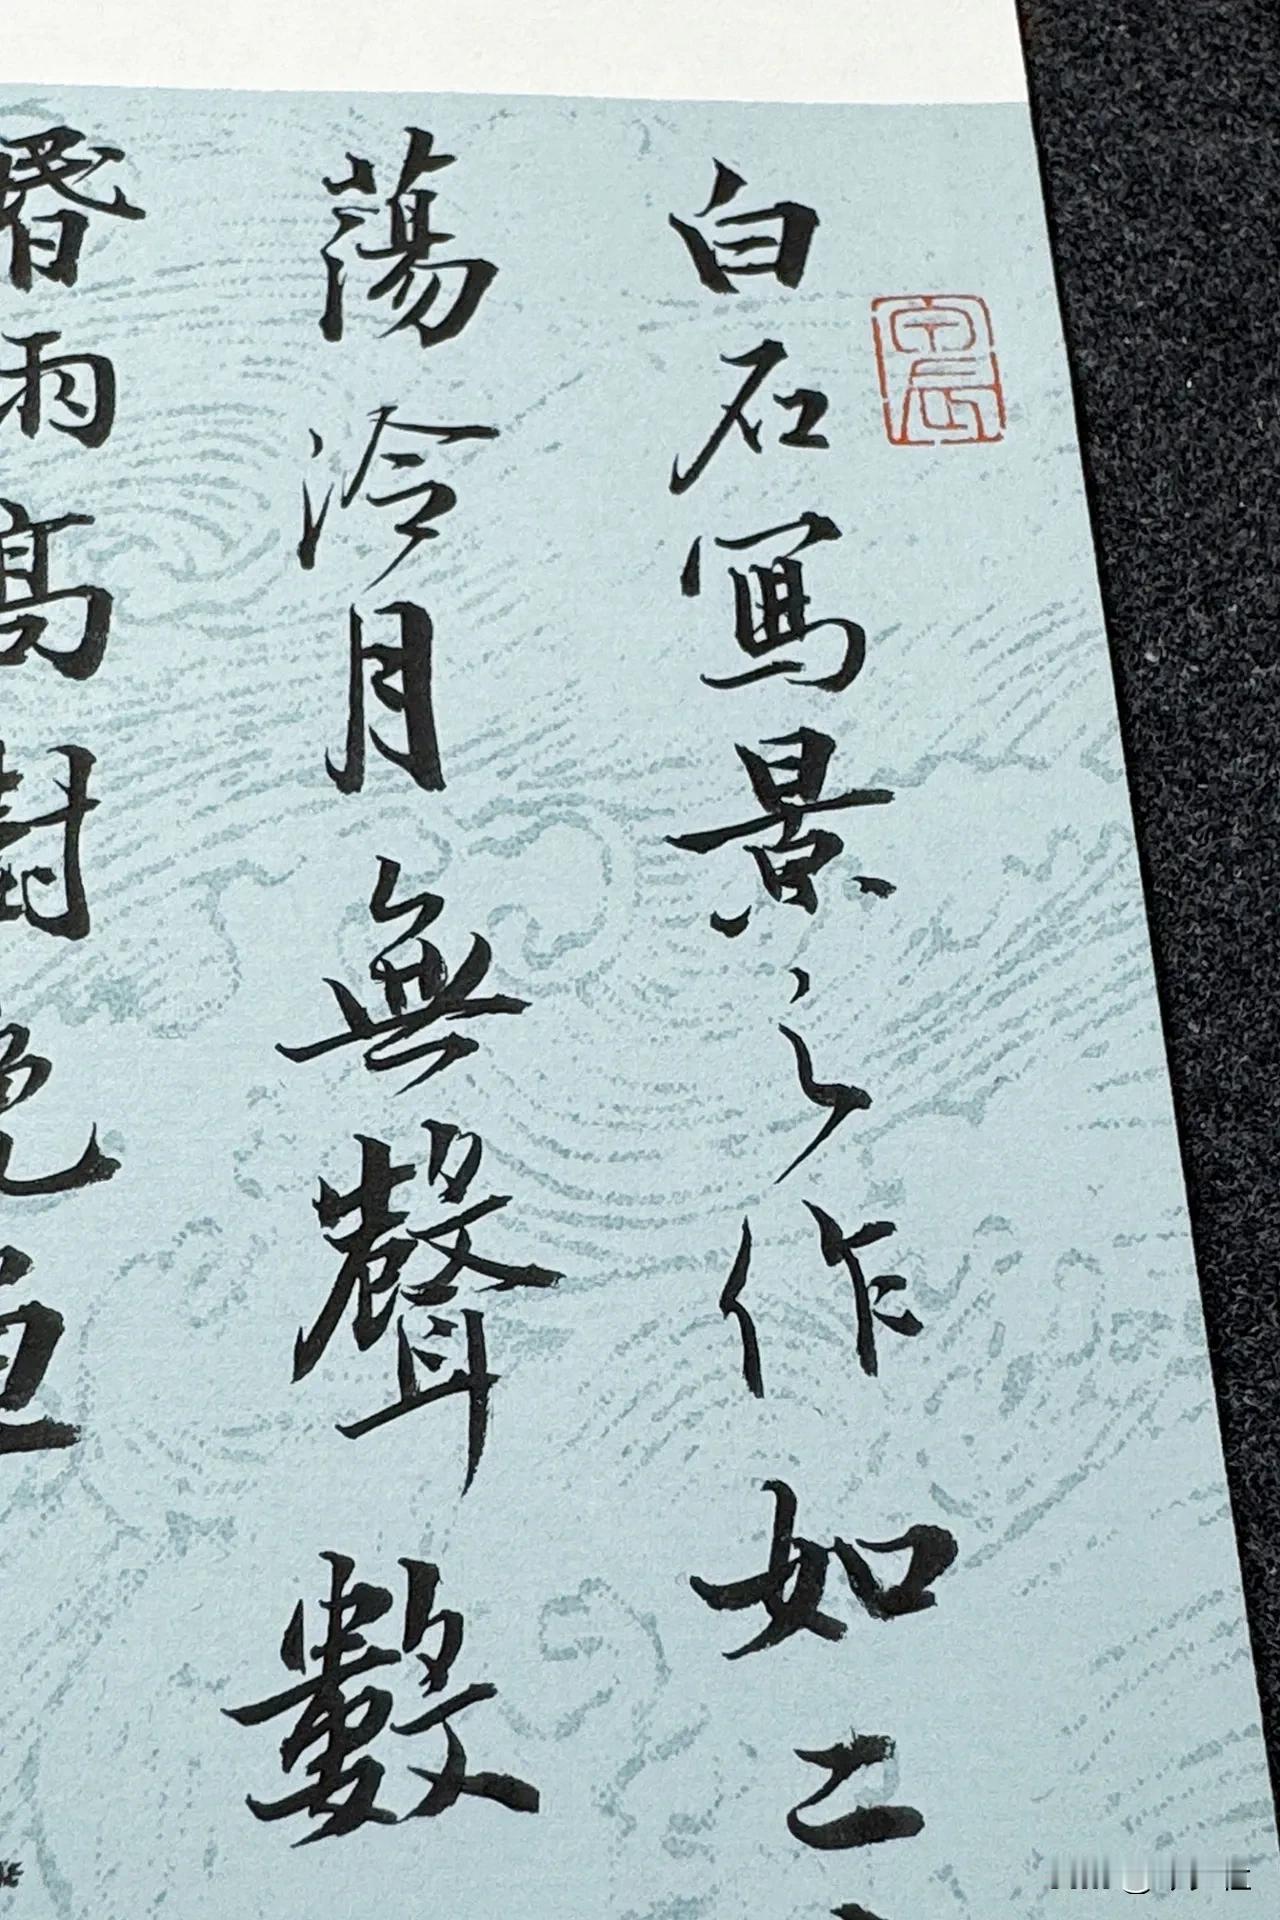 白石寫景之作如二
蕩冷月無聲數
昬雨高樹晚